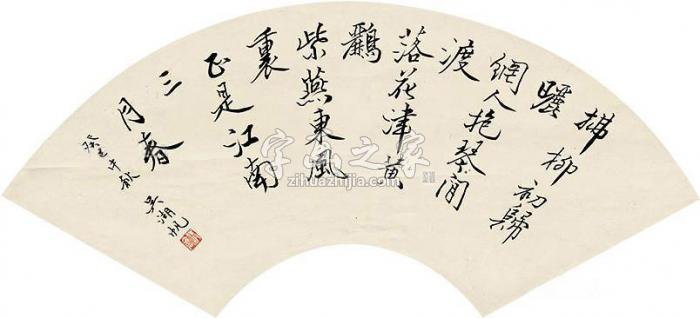 拂柳初歸
曬
網人抱琴閒
渡
落花津黃
鸝
紫燕東風
裏
正是江南
三
月春
癸巳中秋
吳湖帆
字画之家
zihuazhijia.com